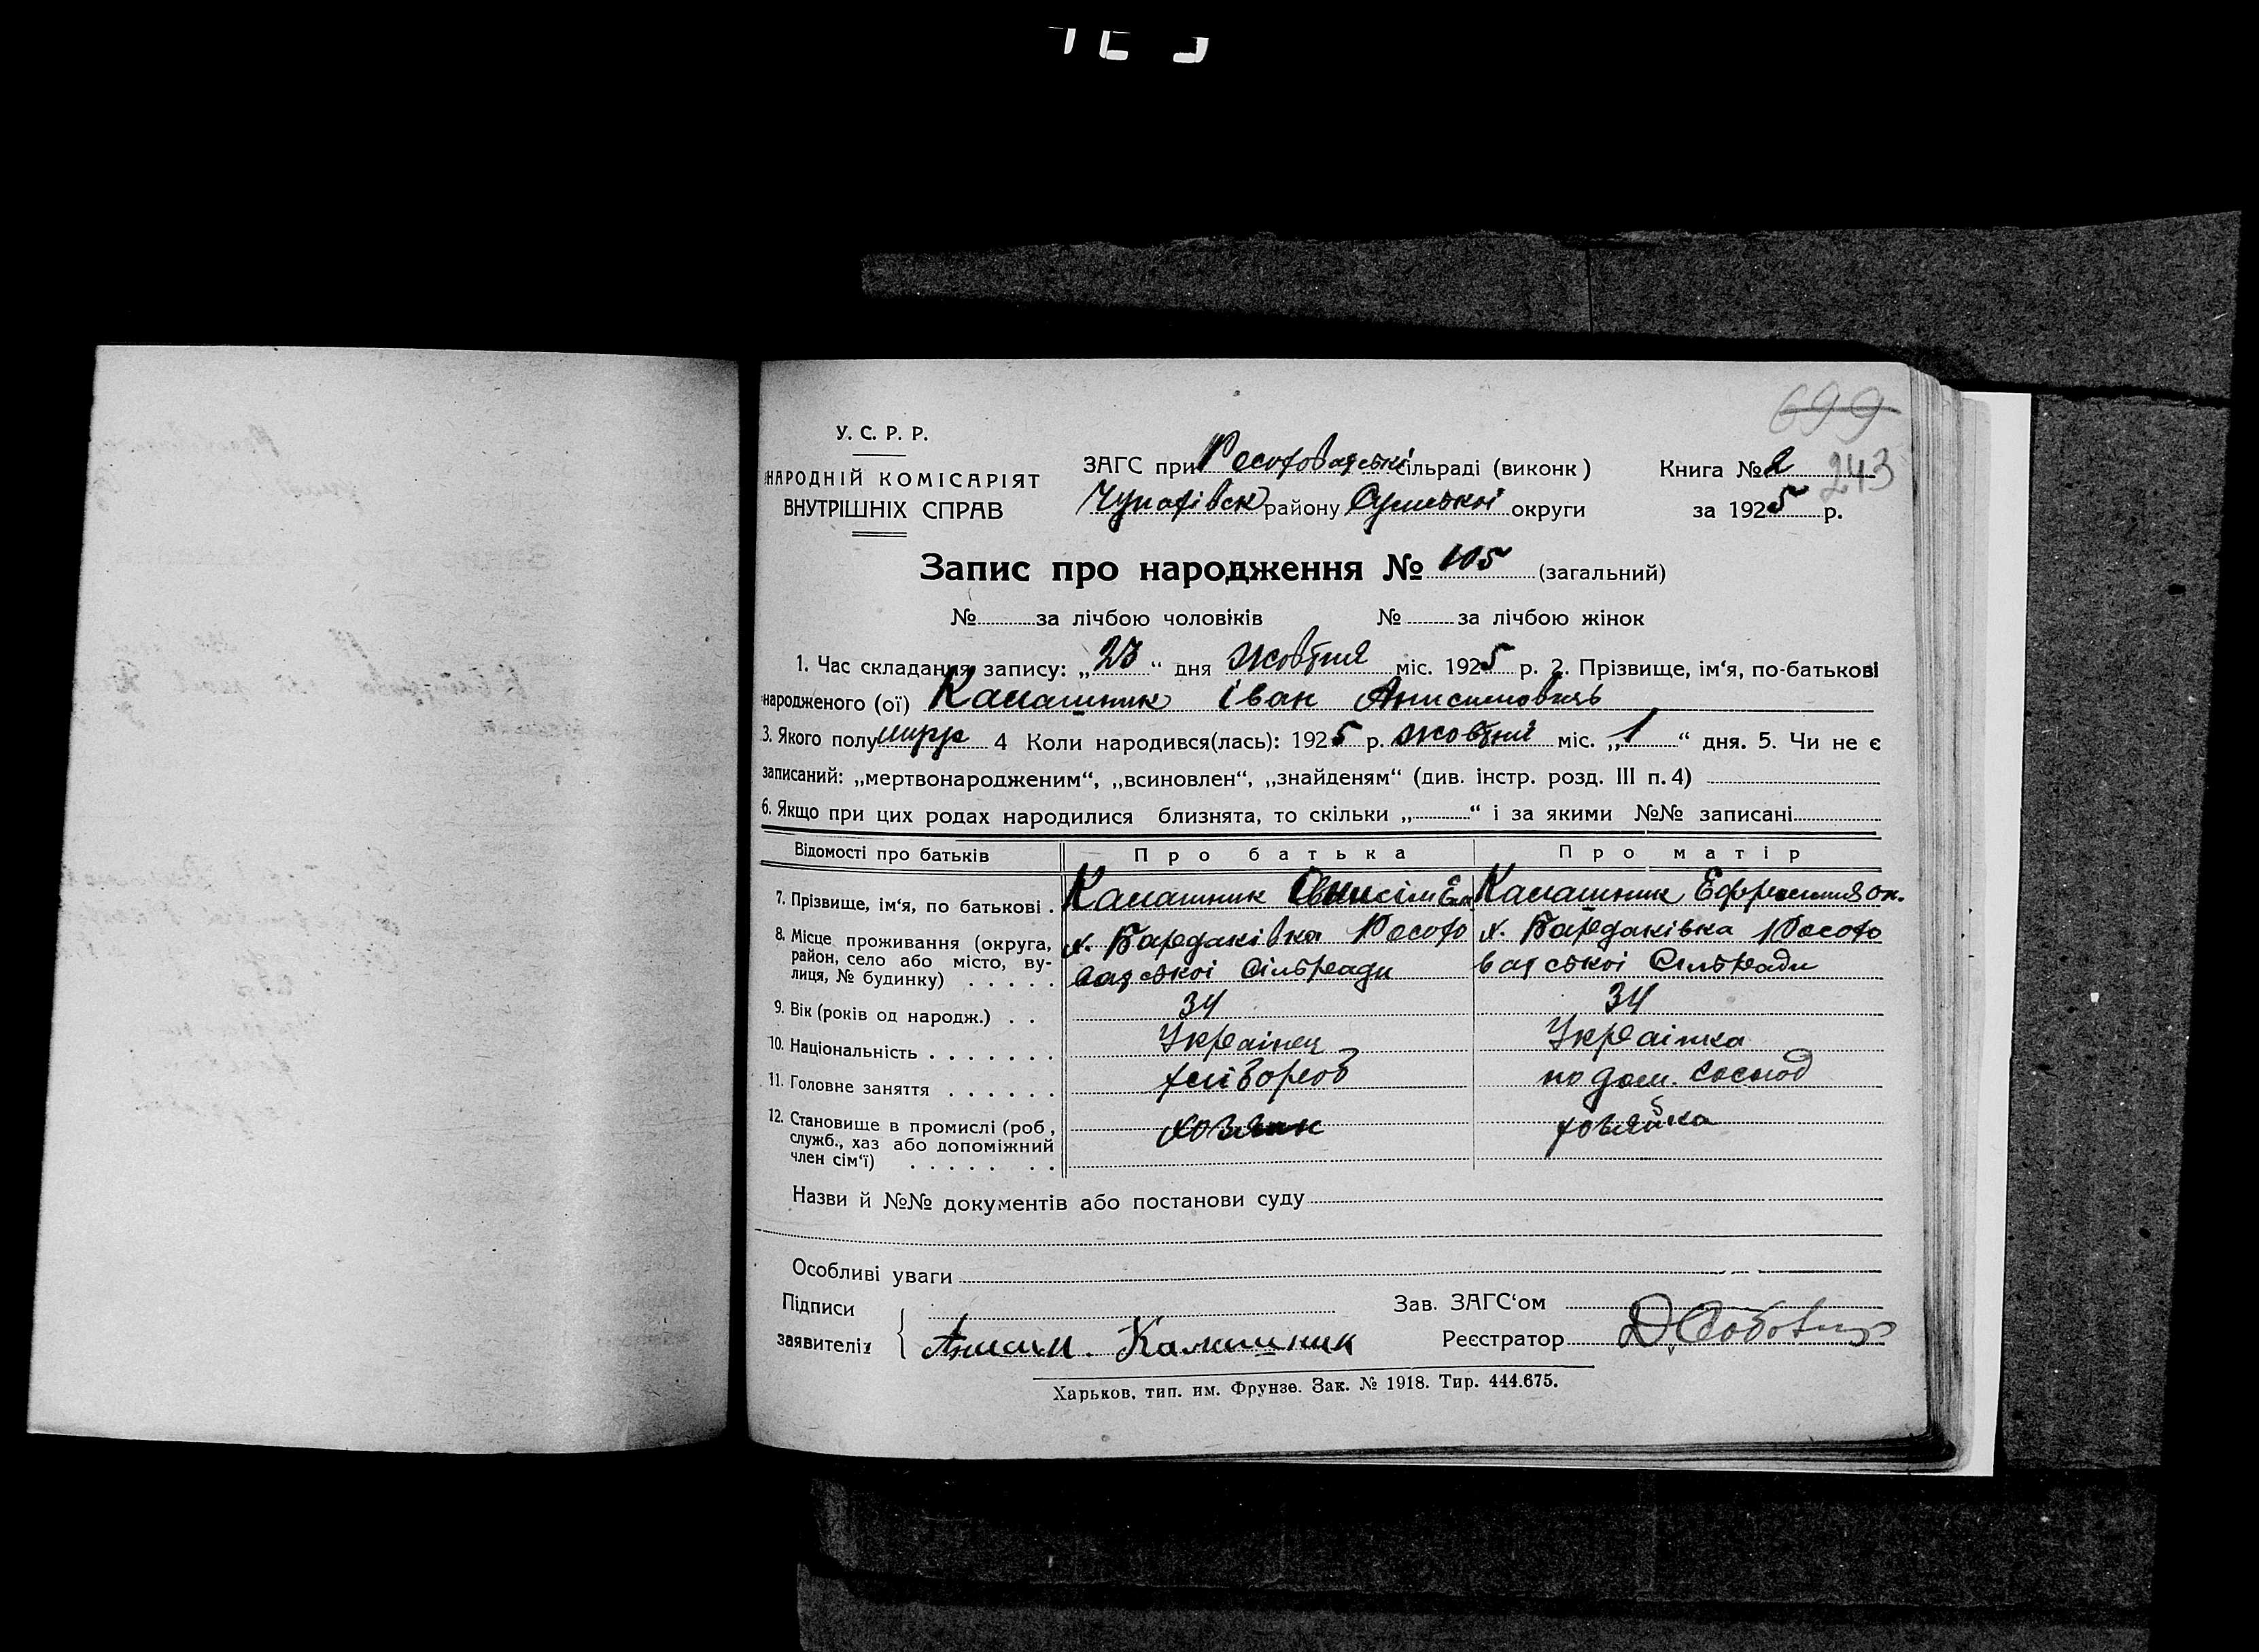 699
У. С. Р. Р.
НАРОДНІЙ КОМІСАРІЯТ
ВНУТРІШНІХ СПРАВ
ЗАГС при сільраді (виконк)
Чупахівск району Сумської округи
Книга № 2 243
за 1925 р.
Запис про народження № 105 (загальний)
№ за лічбою чоловіків № за лічбою жінок
1. Час складання запису: „23“ дня жовтня міс. 1925 р. 2. Прізвище, ім‘я, по-батькові
народженого (ої) Калашник Іван Анисимовичь
3. Якого полу 4 Коли народився(лась): 1925 р. жовтня міс. „1“ дня. 5. Чи не є
записаний: „мертвонародженим“, „всиновлен“, „знайденям“ (див. інстр. розд. III п. 4)
6. Якщо при цих родах народилися близнята, то скільки „ “ і за якими №№ записані
Відомості про батьків Про батька Про матір
7. Прізвище, ім‘я, по батькові . Калашник Калашник
8. Місце проживання (округа, район, село або місто, вулиця, № будинку) . . . . .
х. Бардаківка Росохо
ватської Сільради
х. Бардаківка Росохо
ватської Сільради
9. Вік (років од народж.) . . 34 34
10. Національність . . . . . . . Українец Українка
11. Головне заняття . . . . . . хлібороб по дом. господ
12. Становище в промислі (роб., служб., хаз або допоміжний член сім‘ї) . . . . . . . хозяин хозяйка
Назви й №№ документів або постанови суду
Особливі уваги
Підписи
заявителів Анисим. Калашник
Зав. ЗАГС‘ом
Реєстратор
Харьков, тип. им. Фрунзе. Зак. № 1918. Тир. 444.675.